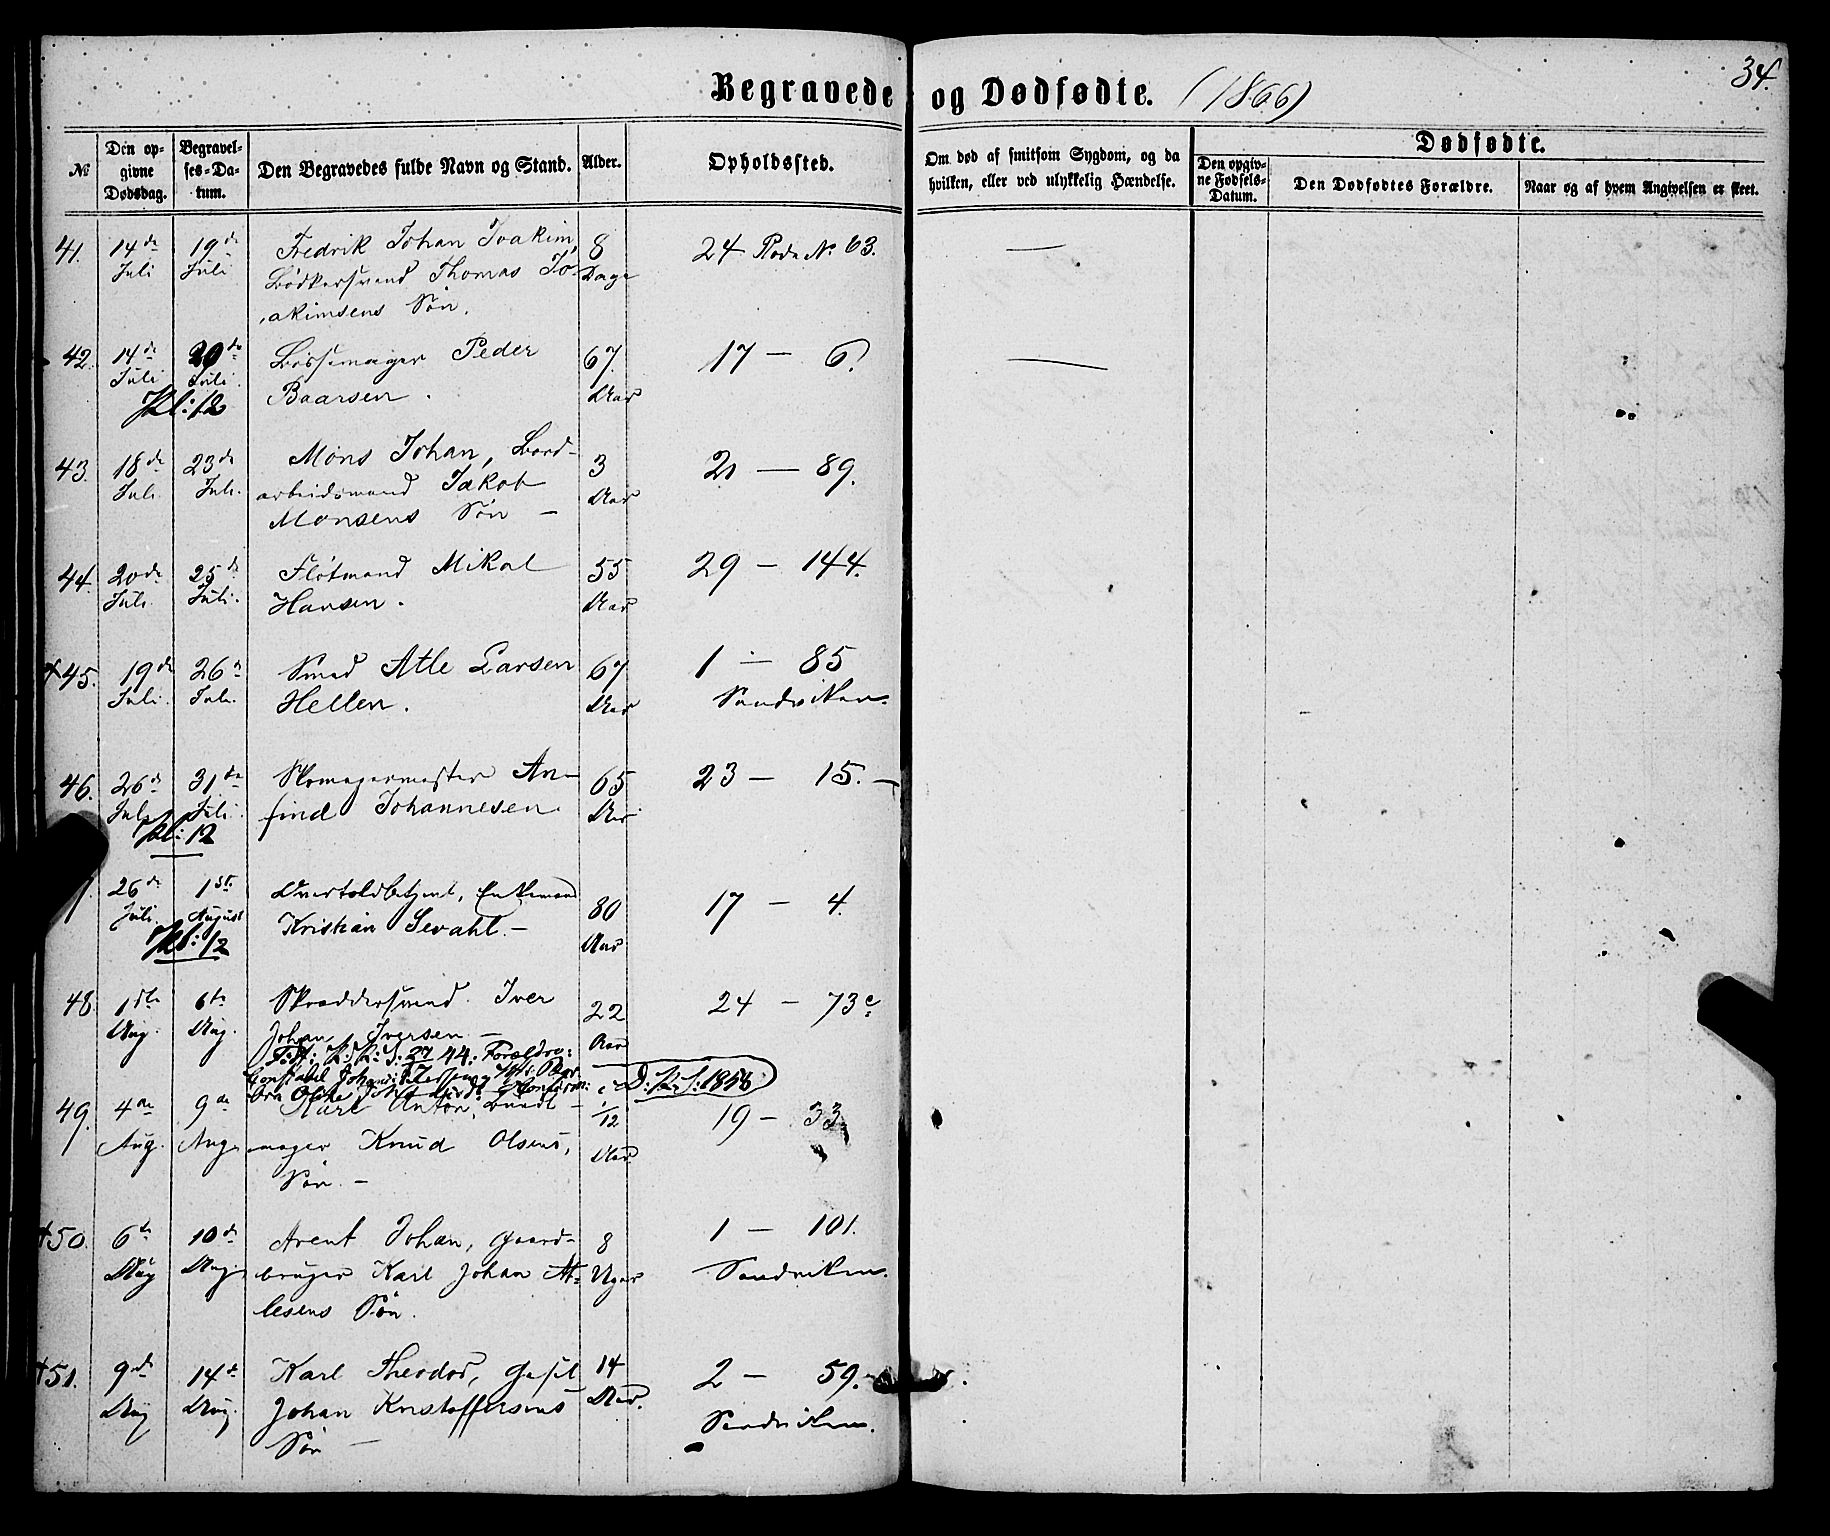 Begravede og Dødfødte. (1866)
34.
№
Den opgivne Dødsdag.
Begravelses-Datum.
Den Begravedes fulde Navn og Stand.
Alder.
Opholdssted.
Om død af smitsom Sygdom, og da hvilken, eller ved ulykkelig Hændelse.
Dødfødte.
Den opgivne Fødsels-Datum.
Den Dødfødtes Forældre.
Naar og af hvem Angivelsen er skeet.
41. 14de 19de Fredrik Johan Joakim, 8 24 Rode No 63. —
Juli Juli Bødkersvend Thomas Jo- Dage
akimsens Søn.
42. 14de 20de Bøssemager Peder 67. 17 — 6. —
Juli Juli. Baarsen. Aar
Kl: 12
43. 18de 23de Mons Johan, Bord- 3 21 — 89.
Juli. Juli. arbeidsmand Jakob Aar
Monsens Søn —
44. 20de 25de Fløtmand Mikal 55 29 — 144.
Juli. Juli. Hansen. Aar
+45. 19de 26de Smed Atle Larsen 67 1 — 85
Juli. Juli. Hellen. Aar Sandviken.
46. 26de 31de Skomagermester An- 65 23 — 15. —
Juli Juli. find Johannesen Aar
Kl: 12
26de 1st. Overtoldbetjent, Enkemand 80 17 — 4.
Juli. August Kristian Sevahl. — Aar
Kl: 12
48. 1ste 6te Skræddersvend Iver 22 24 — 73c
Aug. Aug. Johan Iversen — Aar
27 44: Forældre:
D: K: S: 1856
49. 4de 9de Karl Anton, 1/12 19 — 33
Aug. Aug. mager Knud Olsens, Aar
Søn. —
+50. 6te 10de Arent Johan, Gaard- 8 1 — 101.
Aug Aug. bruger Karl Johan At- Uger Sandviken.
lesens Søn.
+51. 9de 14de Karl Theodor, 14 2 — 59.
Aug Aug. Johan Kristoffersens Aar. Sandviken.
Søn —